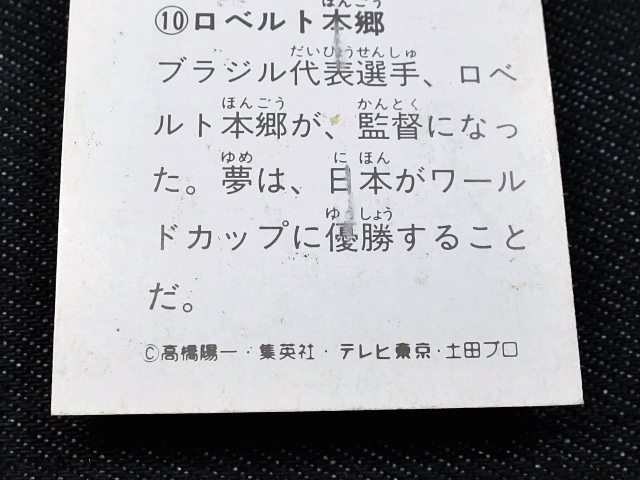 ⑩ロベルト本郷
ブラジル代表選手、ロベ
ルト本郷が、監督になっ
た。夢は、日本がワール
ドカップに優勝すること
だ。
©高橋陽一・集英社・テレビ東京・土田プロ